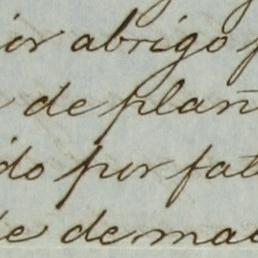 ior abrigo p
de plan
ido por fal
de de ma